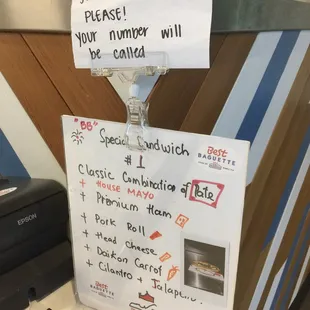 PLEASE!
Your number will
be called
"BB"
Special Sandwich
# 1
Best
BAGUETTE
Classic Combination of Pate
+ HOUSE MAYO
+ Premium Ham
+ Pork Roll
+ Head Cheese
+ Daikon Carrot
+ Cilantro + Jalapeno
Best
BAGUETTE
EPSON